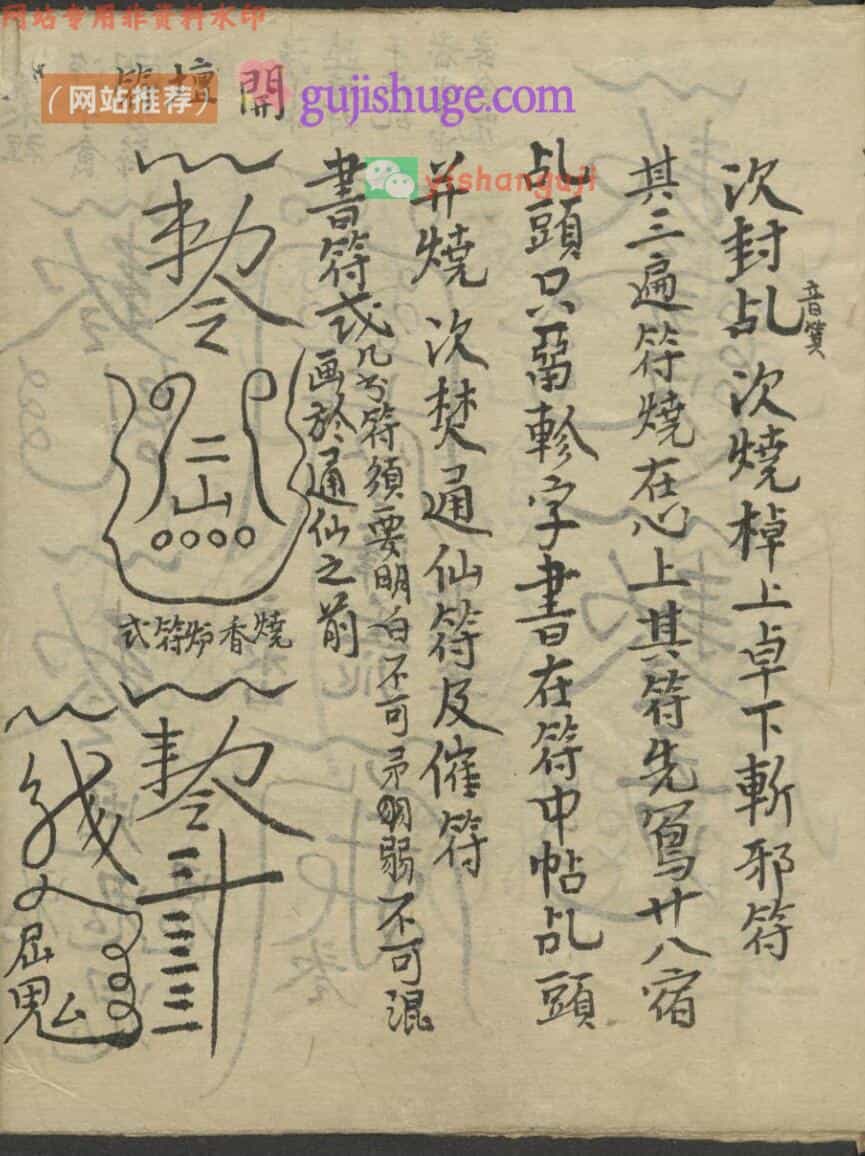 网站专用非資料水印
（网站推荐）
gujishuge.com
yishanguji
開壇符
次封乩音箕次燒棹上卓下斬邪符
其三遍符燒在心上其符先寫廿八宿
乩頭只畱軫字書在符中帖乩頭
并燒次焚通仙符及催符
書符式凡書符須要明白不可弱不可混
画於通仙之前
勅令
二山
燒香炉符式
勅令
三三三三
鬼